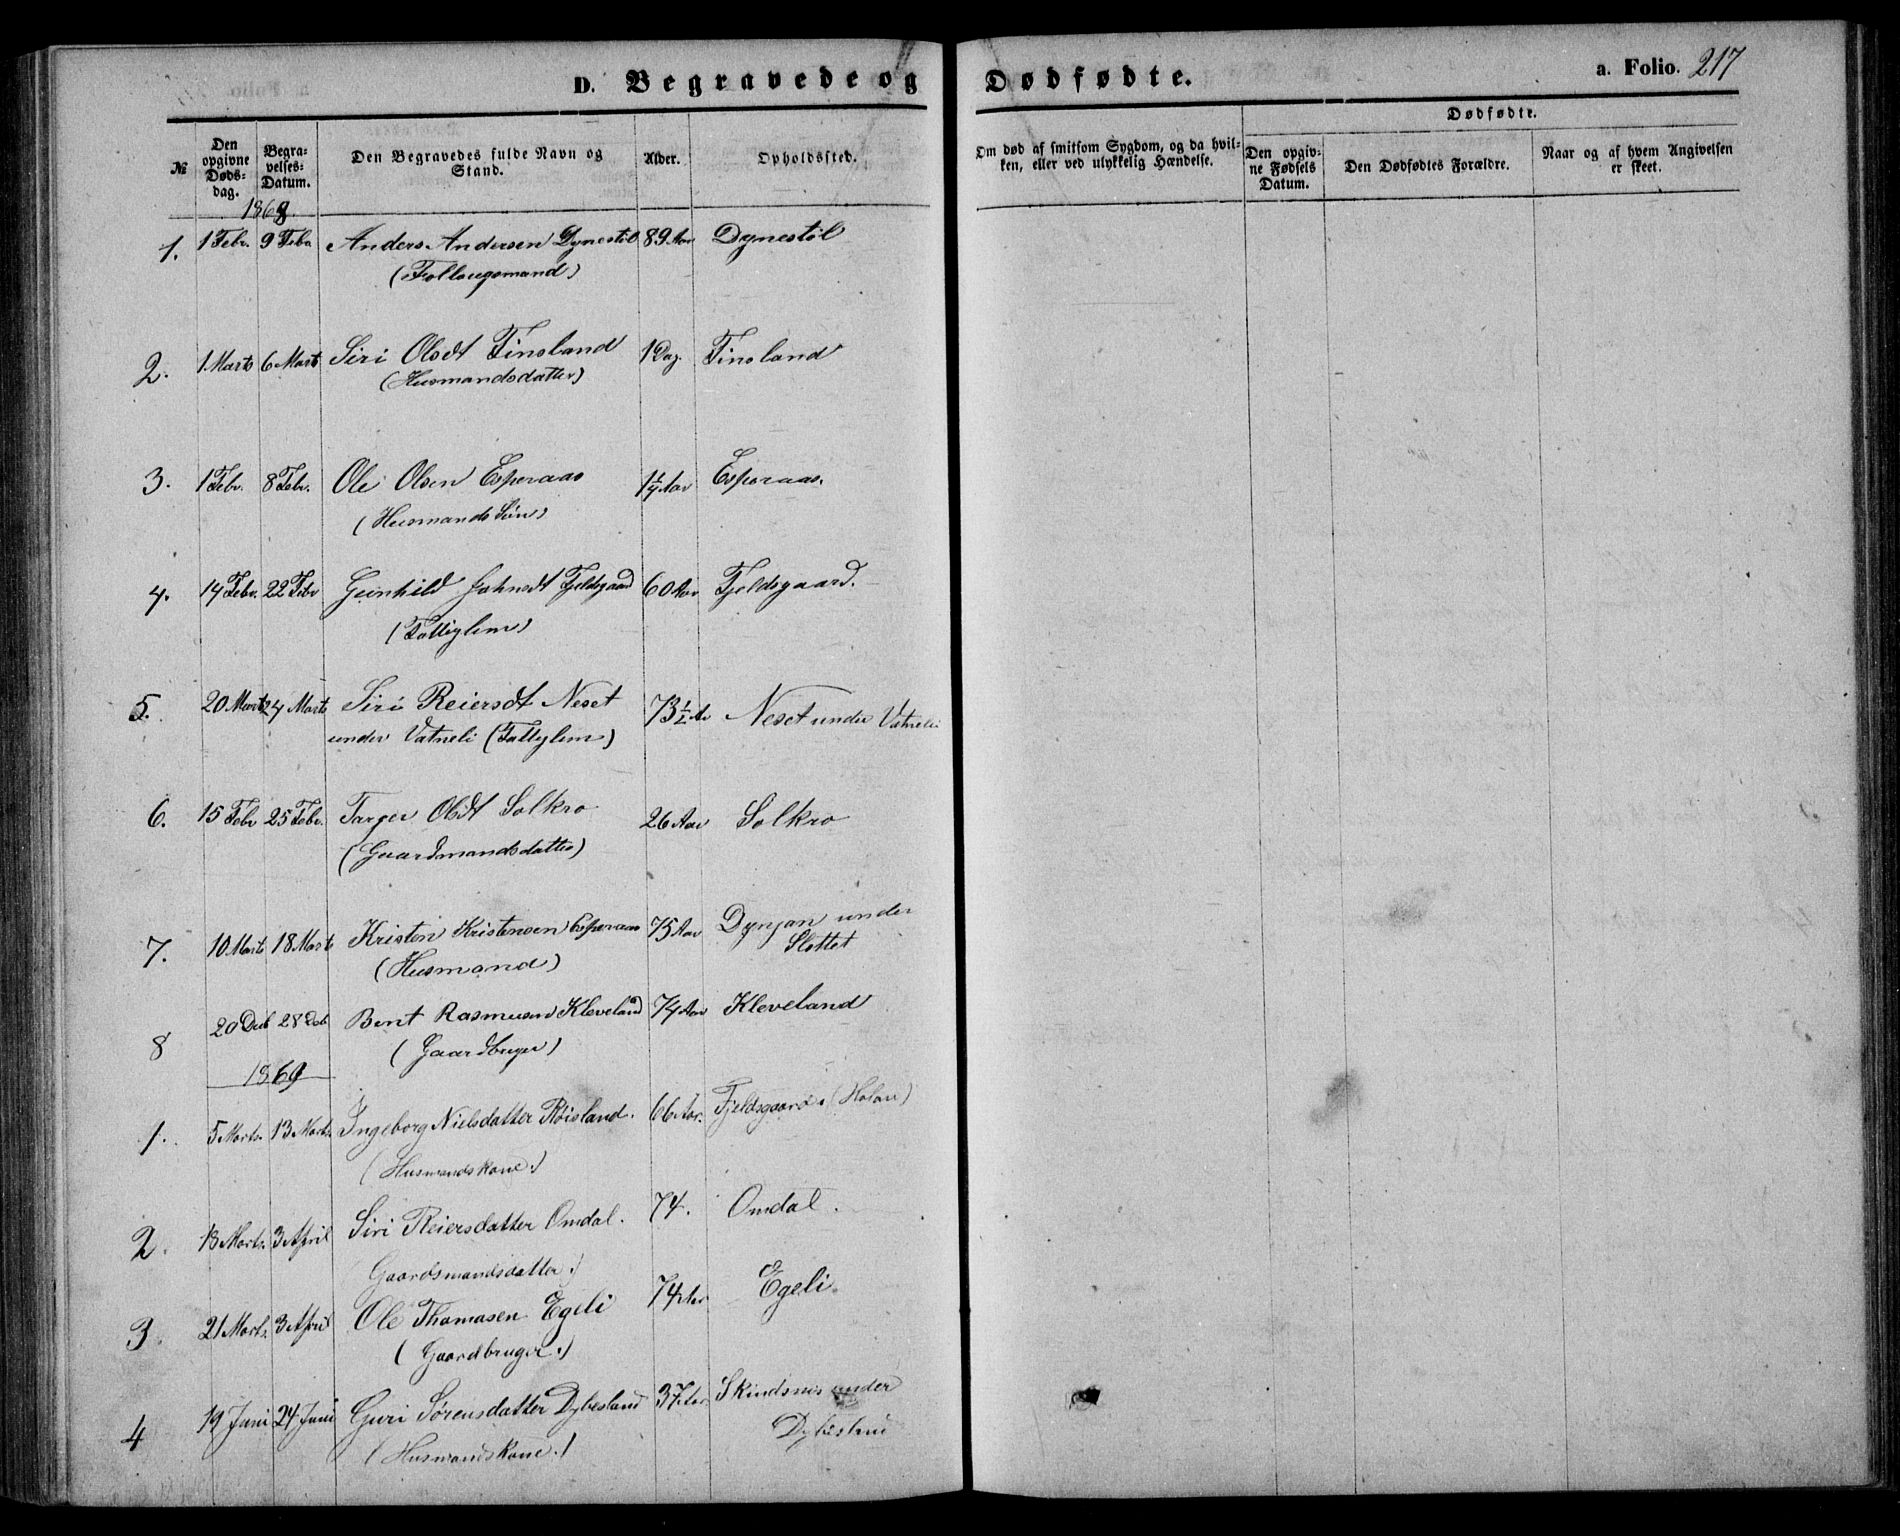 D. Begravede og Dødfødte.
a. Folio. 217
№
Den opgivne Døds-dag.
Begra-velses-Datum.
Den Begravedes fulde Navn og Stand.
Alder.
Opholdssted.
Om død af smitsom Sygdom, og da hvil-ken, eller ved ulykkelig Hændelse.
Dødfødte.
Den opgiv-ne Fødsels Datum.
Den Dødfødtes Forældre.
Naar og af hvem Angivelsen er skeet.
1868.
1. 1 Febr. 9 Febr Anders Andersen Dynestøl 89 Aar Dynestøl
(Follougsmand)
2. 1 Marts 6 Marts Siri Olsdt Finsland 1 Dag. Finsland
(Husmandsdatter)
3. 1 Febr. 8 Febr. Ole Olsen Esperaas 1¼ Aar Esperaas.
(Husmands Søn)
4. 14 Febr. 22 Febr Gunhild Jahnsdt Fjeldsgaard 60 Aar Fjeldsgaard.
(Fattiglem)
5. 20 Marts 24 Marts Siri Reiersdt Neset 73½ Ar Neset under Vatneli
under Vatneli (Fattiglem)
6. 15 Febr 25 Febr. Targer Olsdt Solkro 26 Aar Solkro
(Gaardmandsdatter)
7. 10 Marts 18 Marts Kristen Kristensen Esperaas 75 Aar Dynjan under
Slottet
(Husmand)
8 20 Deb 28 Deb Bent Rasmusen Kleveland 74 Aar Kleveland
(Gaardbruger)
1869
1. 5 Marts. 13 Marts. Ingeborg Nielsdatter Røisland. 66 Aar. Fjeldsgaard (Holan)
(Husmandskone.)
2. 13 Marts. 3 April Siri Reiersdatter Omdal. 74. Omdal.
Gaardsmandsdatter.)
3. 21 Marts. 3 April Ole Thomasen Egeli 74 Aar Egeli.
(Gaardbruger.)
4 19 Juni 24 Juni Guri Sørensdatter Dybesland 37 Aar. Skindsnes under
Dybesland
(Husmandskone.)